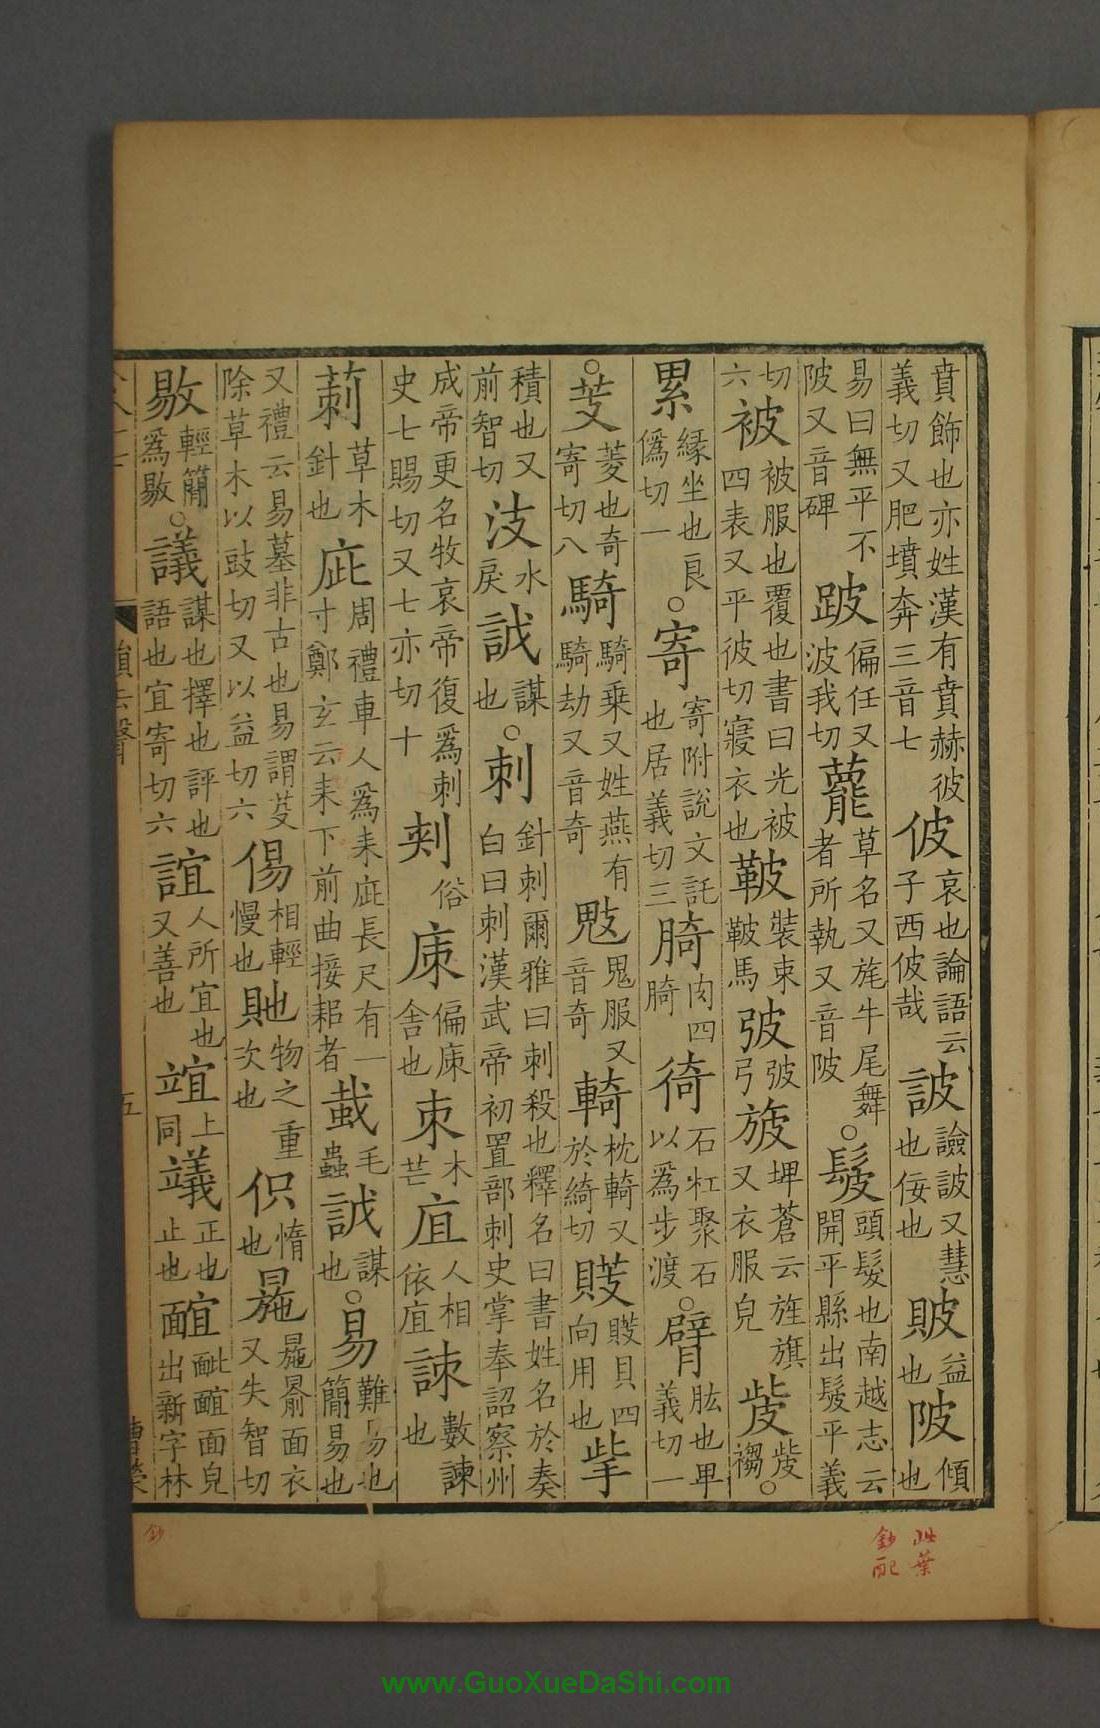 賁飾也亦姓漢有賁赫彼義切又肥墳奔三音七 佊哀也論語云子西佊哉 詖譣詖又慧也佞也 貱益也 陂傾也
易曰無平不陂又音碑 跛偏任又波我切 䕗草名又旄牛尾舞者所執又音陂 ○髲頭髲也南越志云開平縣出髲平義
切六 被被服也覆也書曰光被四表又平彼切寢衣也 鞁裝束鞁馬 𢏗𢏗弓 旇埤蒼云旌旗又衣服皃 㱟㱟䙝○
累緣坐也良僞切一 ○寄寄附說文託也居義切三 䐀肉四䐀 徛石杠聚石以爲步渡 ○臂肱也卑義切一
○芰菱也奇寄切八 騎騎乘又姓燕有騎劫又音奇 鬾鬼服又音奇 輢枕輢又於綺切 䝰䝰貝四向用也 㧘
積也又前智切 汥水戾 䛑謀也 ○刺針刺爾雅曰刺殺也釋名曰書姓名於奏白曰刺漢武帝初置部刺史掌奉詔察州
成帝更名牧哀帝復爲刺史七賜切又七亦切十 刾俗 庩偏庩舍也 朿木芒 㢀人相依㢀 諫數諫也
莿草木針也 庛周禮車人爲耒庛長尺有一寸鄭玄云耒下前曲接耜者 蛓毛蟲 䛑謀也 ○易難易也簡易也
又禮云易墓非古也易謂芟除草木以豉切又以益切六 傷相輕慢也 貤物之重次也 伿惰也 暆暆䬔面衣又失智切
敡輕簡爲敡 ○議謀也擇也評也語也宜寄切六 誼人所宜也又善也 竩上同 𦏁正也止也 䩉䩈䩉面皃出新字林
韻去聲
五
曹榮
此葉
鈔配
鈔
www.GuoXueDaShi.com